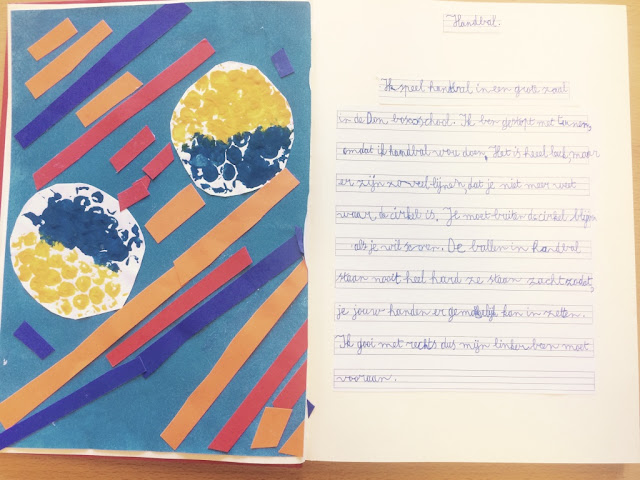 Handbal.
Ik speel handbal in een grote zaal
in de Don boscoschool. Ik ben gestopt met turnen,
omdat ik handbal wou doen. Het is heel leuk, maar
er zijn zo veel lijnen, dat je niet meer weet
waar de cirkel is. Je moet buiten de cirkel blijven
als je wil scoren. De ballen in handbal
staan nooit heel hard ze staan zacht zodat,
je jouw handen er gemakkelijk kan in zetten.
Ik gooi met rechts dus mijn linker been moet
vooraan.